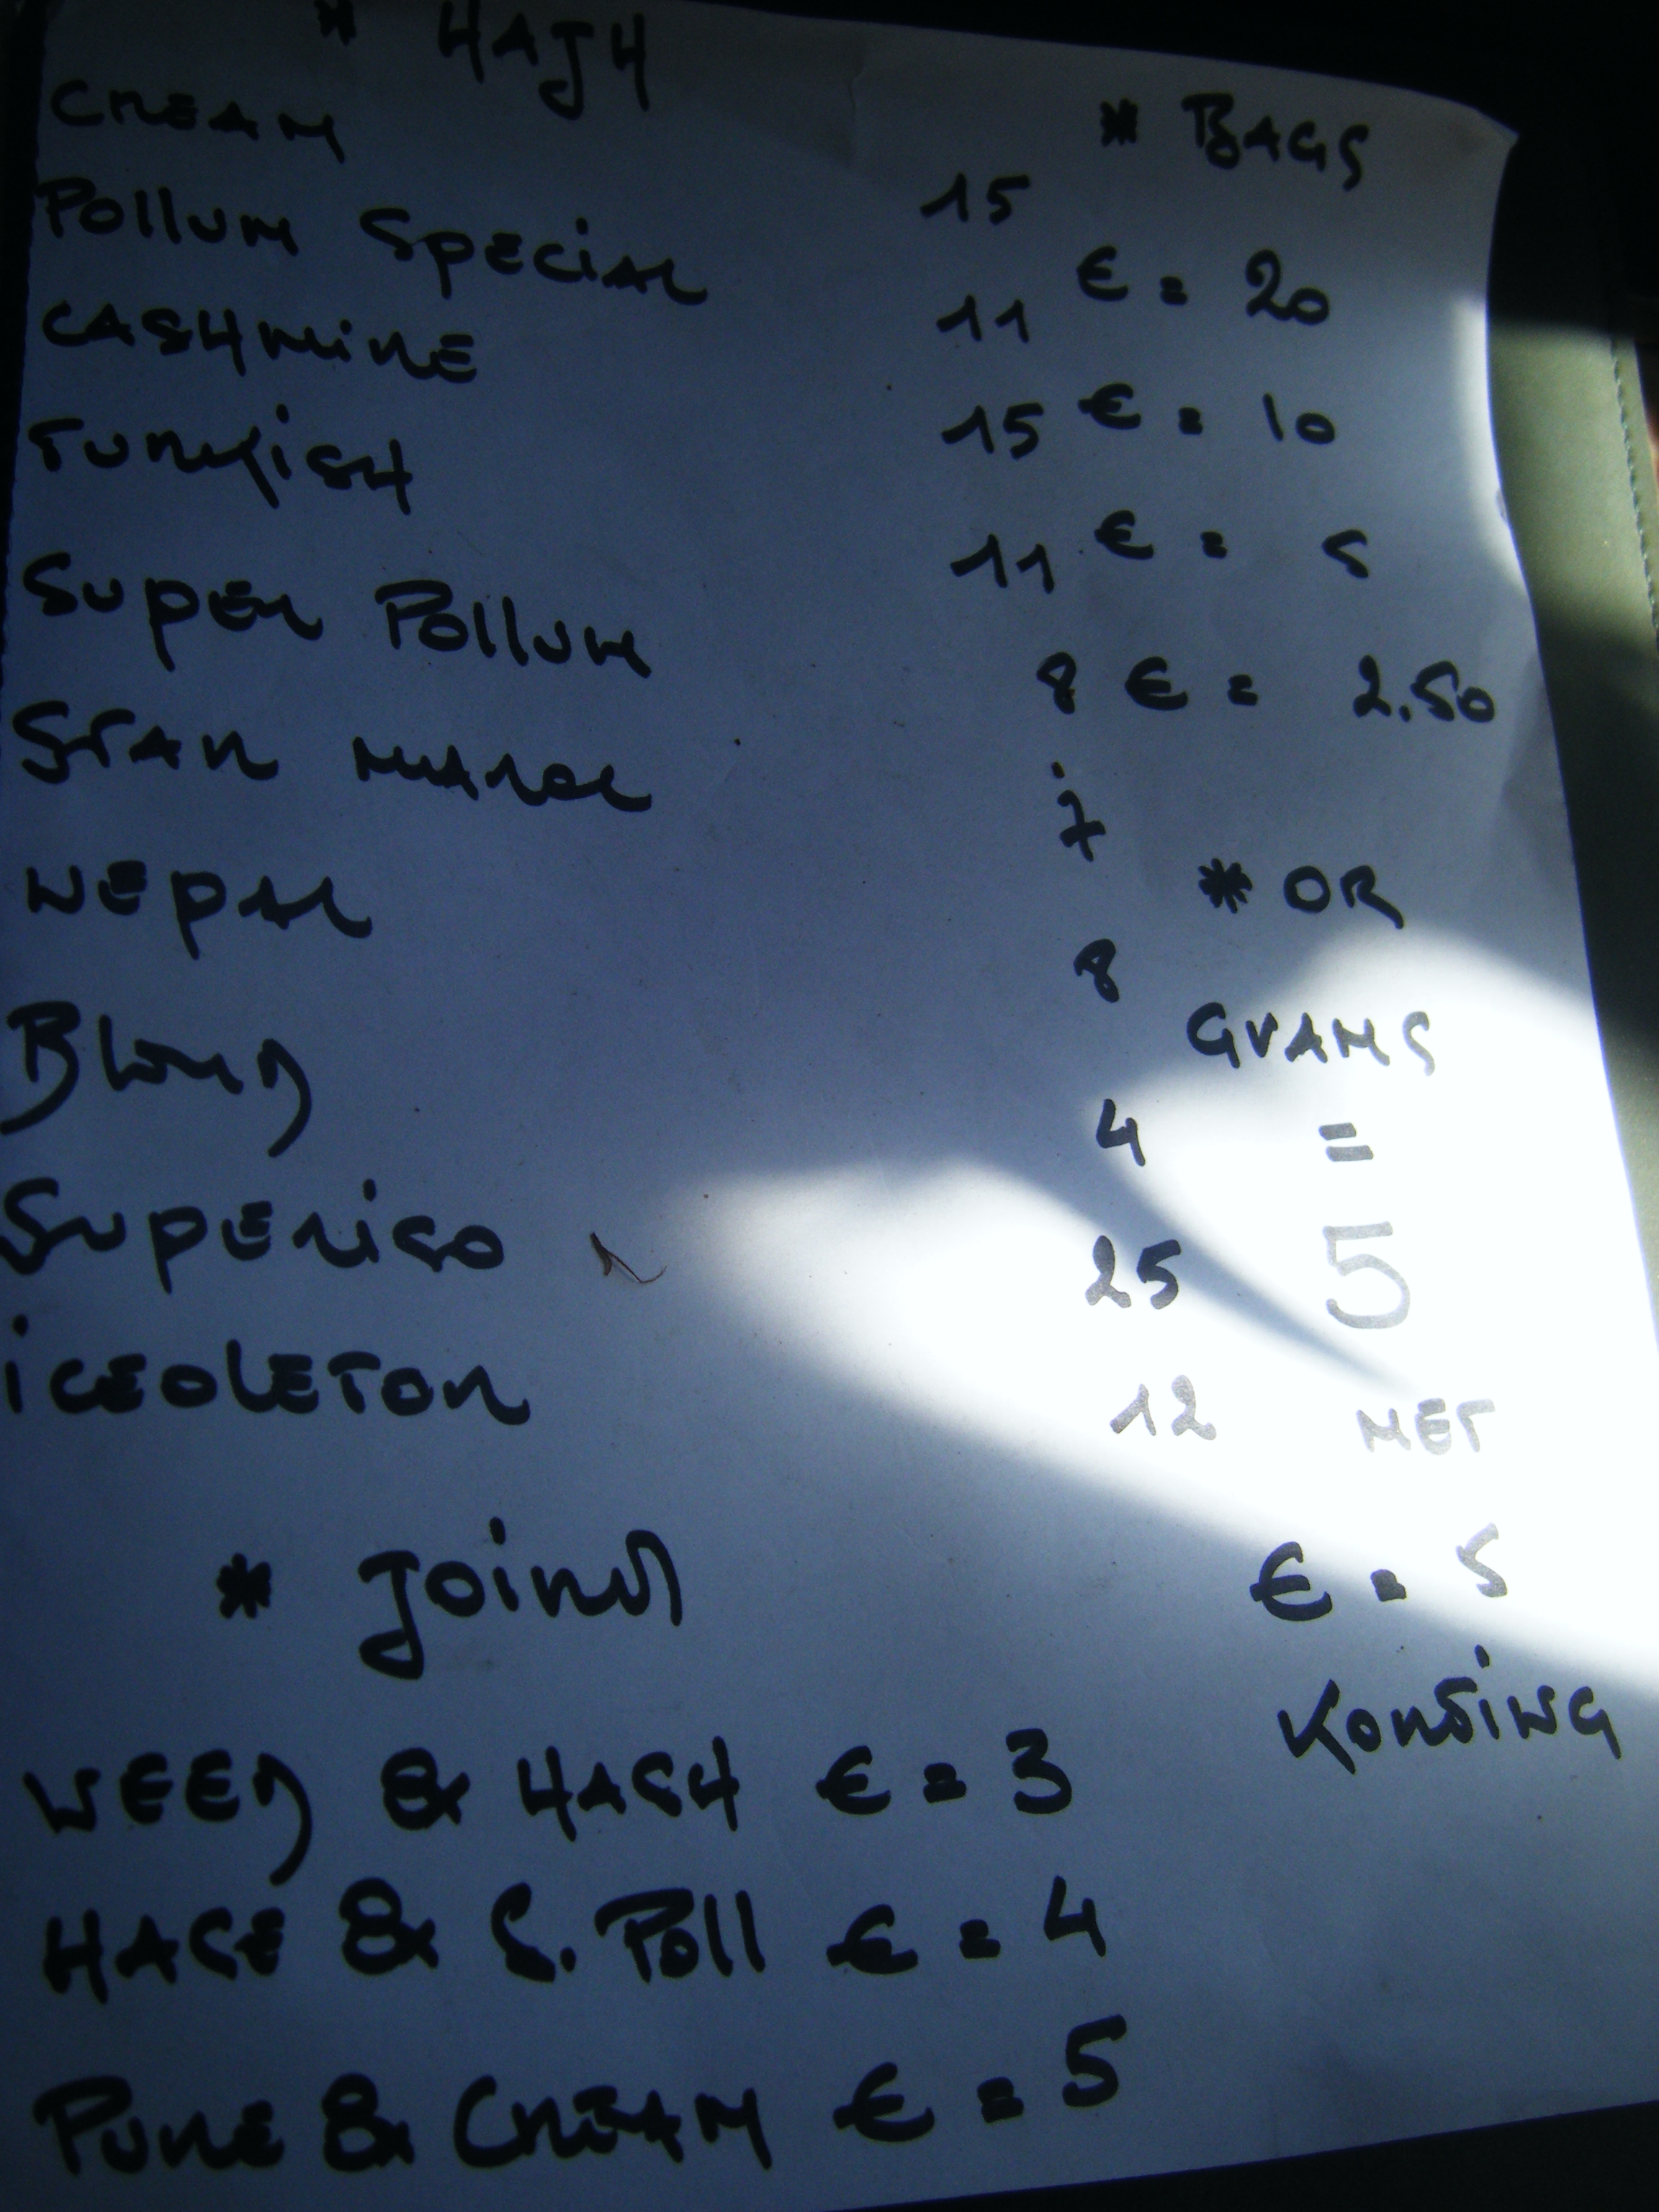 * HASH
CREAM 15
POLLUM SPECIAL 11
CASHMIRE 15
TURKISH 11
SUPER POLLUM 8
STAR MAROC 7
NEPAL 8
BLOND 4
SUPERISO 25
ICEOLETOR 12
* JOINT
WEED & HASH € = 3
HASE & S. POLL € = 4
PURE & CREAM € = 5
* BAGS
€ = 20
€ = 10
€ = 5
€ = 2.50
* OR
GRAMS
=
5
MET
€ = 5
KORTING